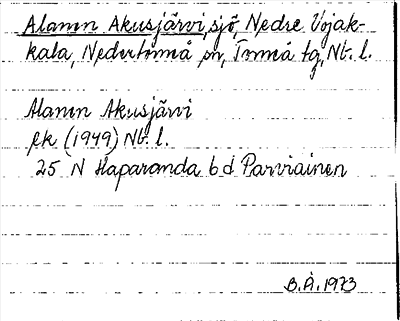 Alanen Akusjärvi, sjö, Nedre Vojak-
kala, Nedertorneå sn, Torneå tg, Nb. l.
Alanen Akusjärvi
ek (1949) Nb. l.
25 N Haparanda 6 d Parviainen
B.Å. 1973